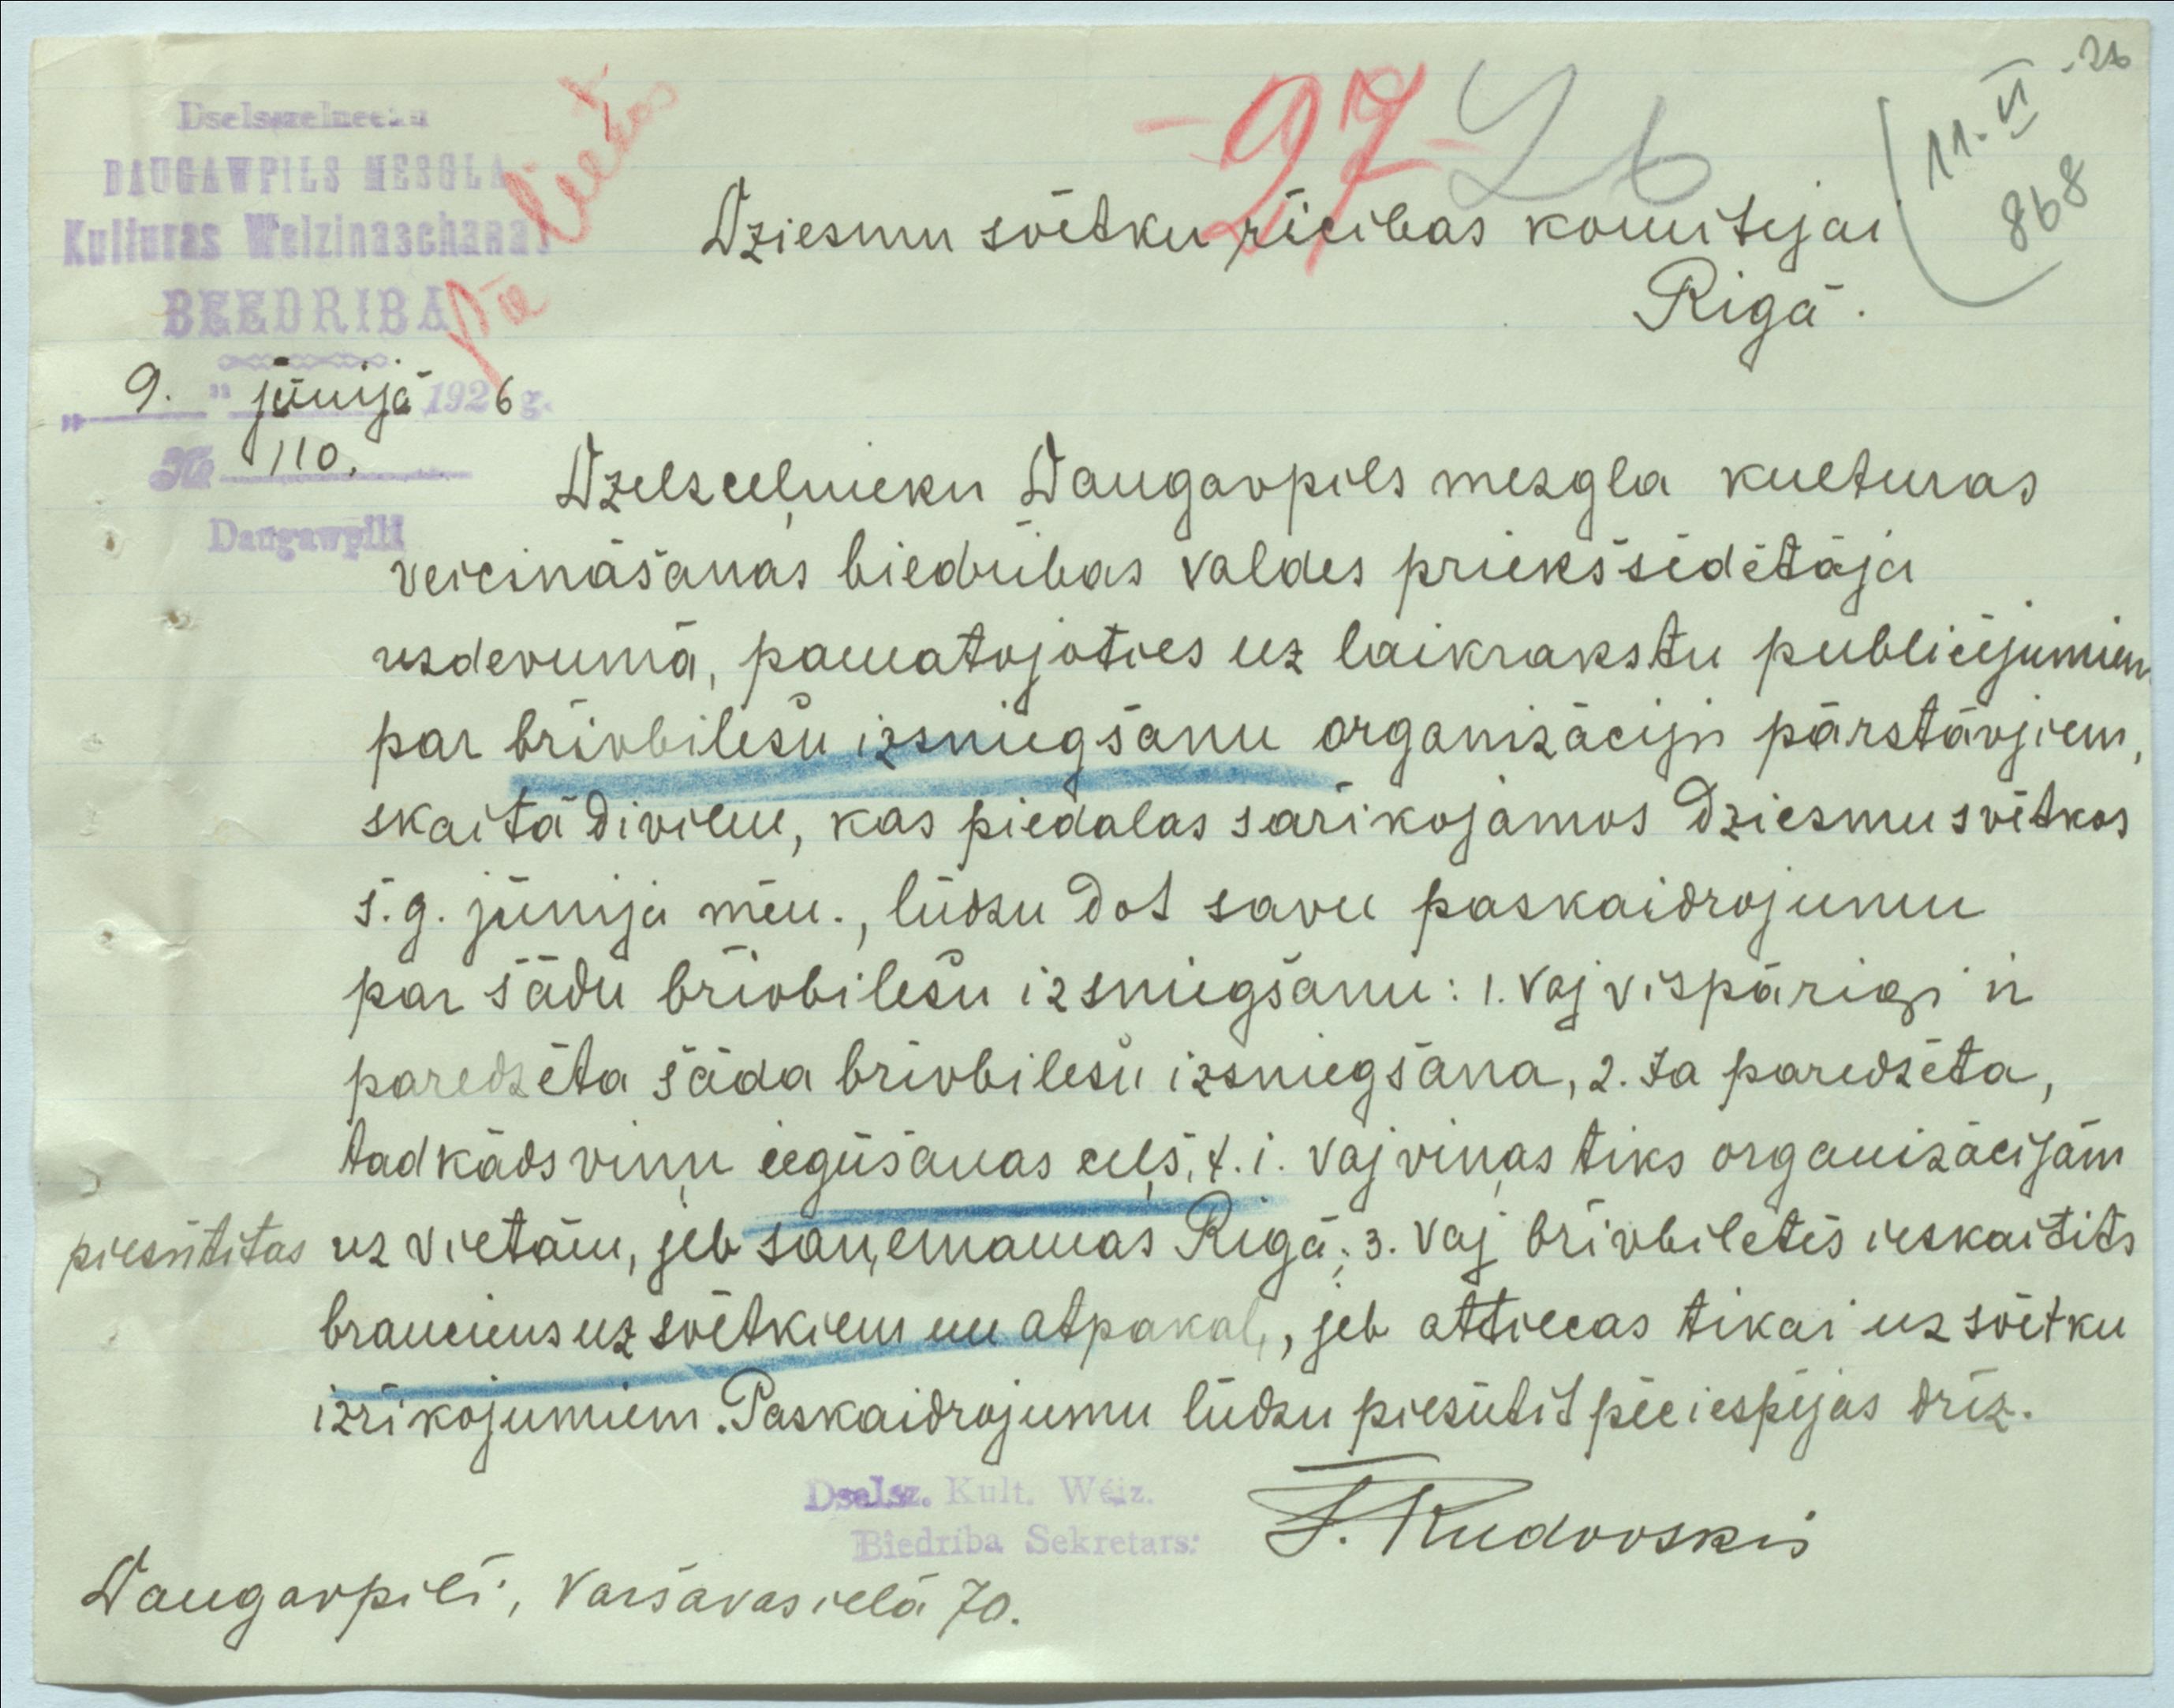 Dselszelneeku
DAUGAWPILS MESGLA
Kulturas Weizinaschanas
BEEDRIBA
"9." jūnijā 1926 g.
№ 110.
Daugawpilī
pie lietas
-97-
26
11. VI -26
868
Dziesmu svētku rīcibas komitejai
Rigā.
Dzelzceļnieku Daugavpils mezgla kulturas
veicināšanas biedribas valdes priekšsēdētāja
uzdevumā, pamatojoties uz laikrakstu publicējumiem
par brīvbilešu izsniegšanu organizāciju pārstāvjiem,
skaitā diviem, kas piedalas sarīkojamos Dziesmu svētkos
š.g. jūnija mēn., lūdzu dot savu paskaidrojumu
par šādu brīvbilešu izsniegšanu: 1. vaj vispārigi ir
paredzēta šāda brīvbilešu izsniegšana, 2. Ja paredzēta,
tad kāds viņu iegūšanas ceļš, t.i. vaj viņas tiks organizācijām
piesūtitas uz vietām, jeb saņemamas Rigā; 3. vaj brīvbiletēs ieskaitits
brauciens uz svētkiem un atpakaļ, jeb attiecas tikai uz svētku
izrīkojumiem. Paskaidrojumu lūdzu piesūtit pēc iespējas drīz.
Dselsz. Kult. Weiz.
Biedriba Sekretars:
J. Rudovskis
Daugavpilī, Varšavas ielā 70.